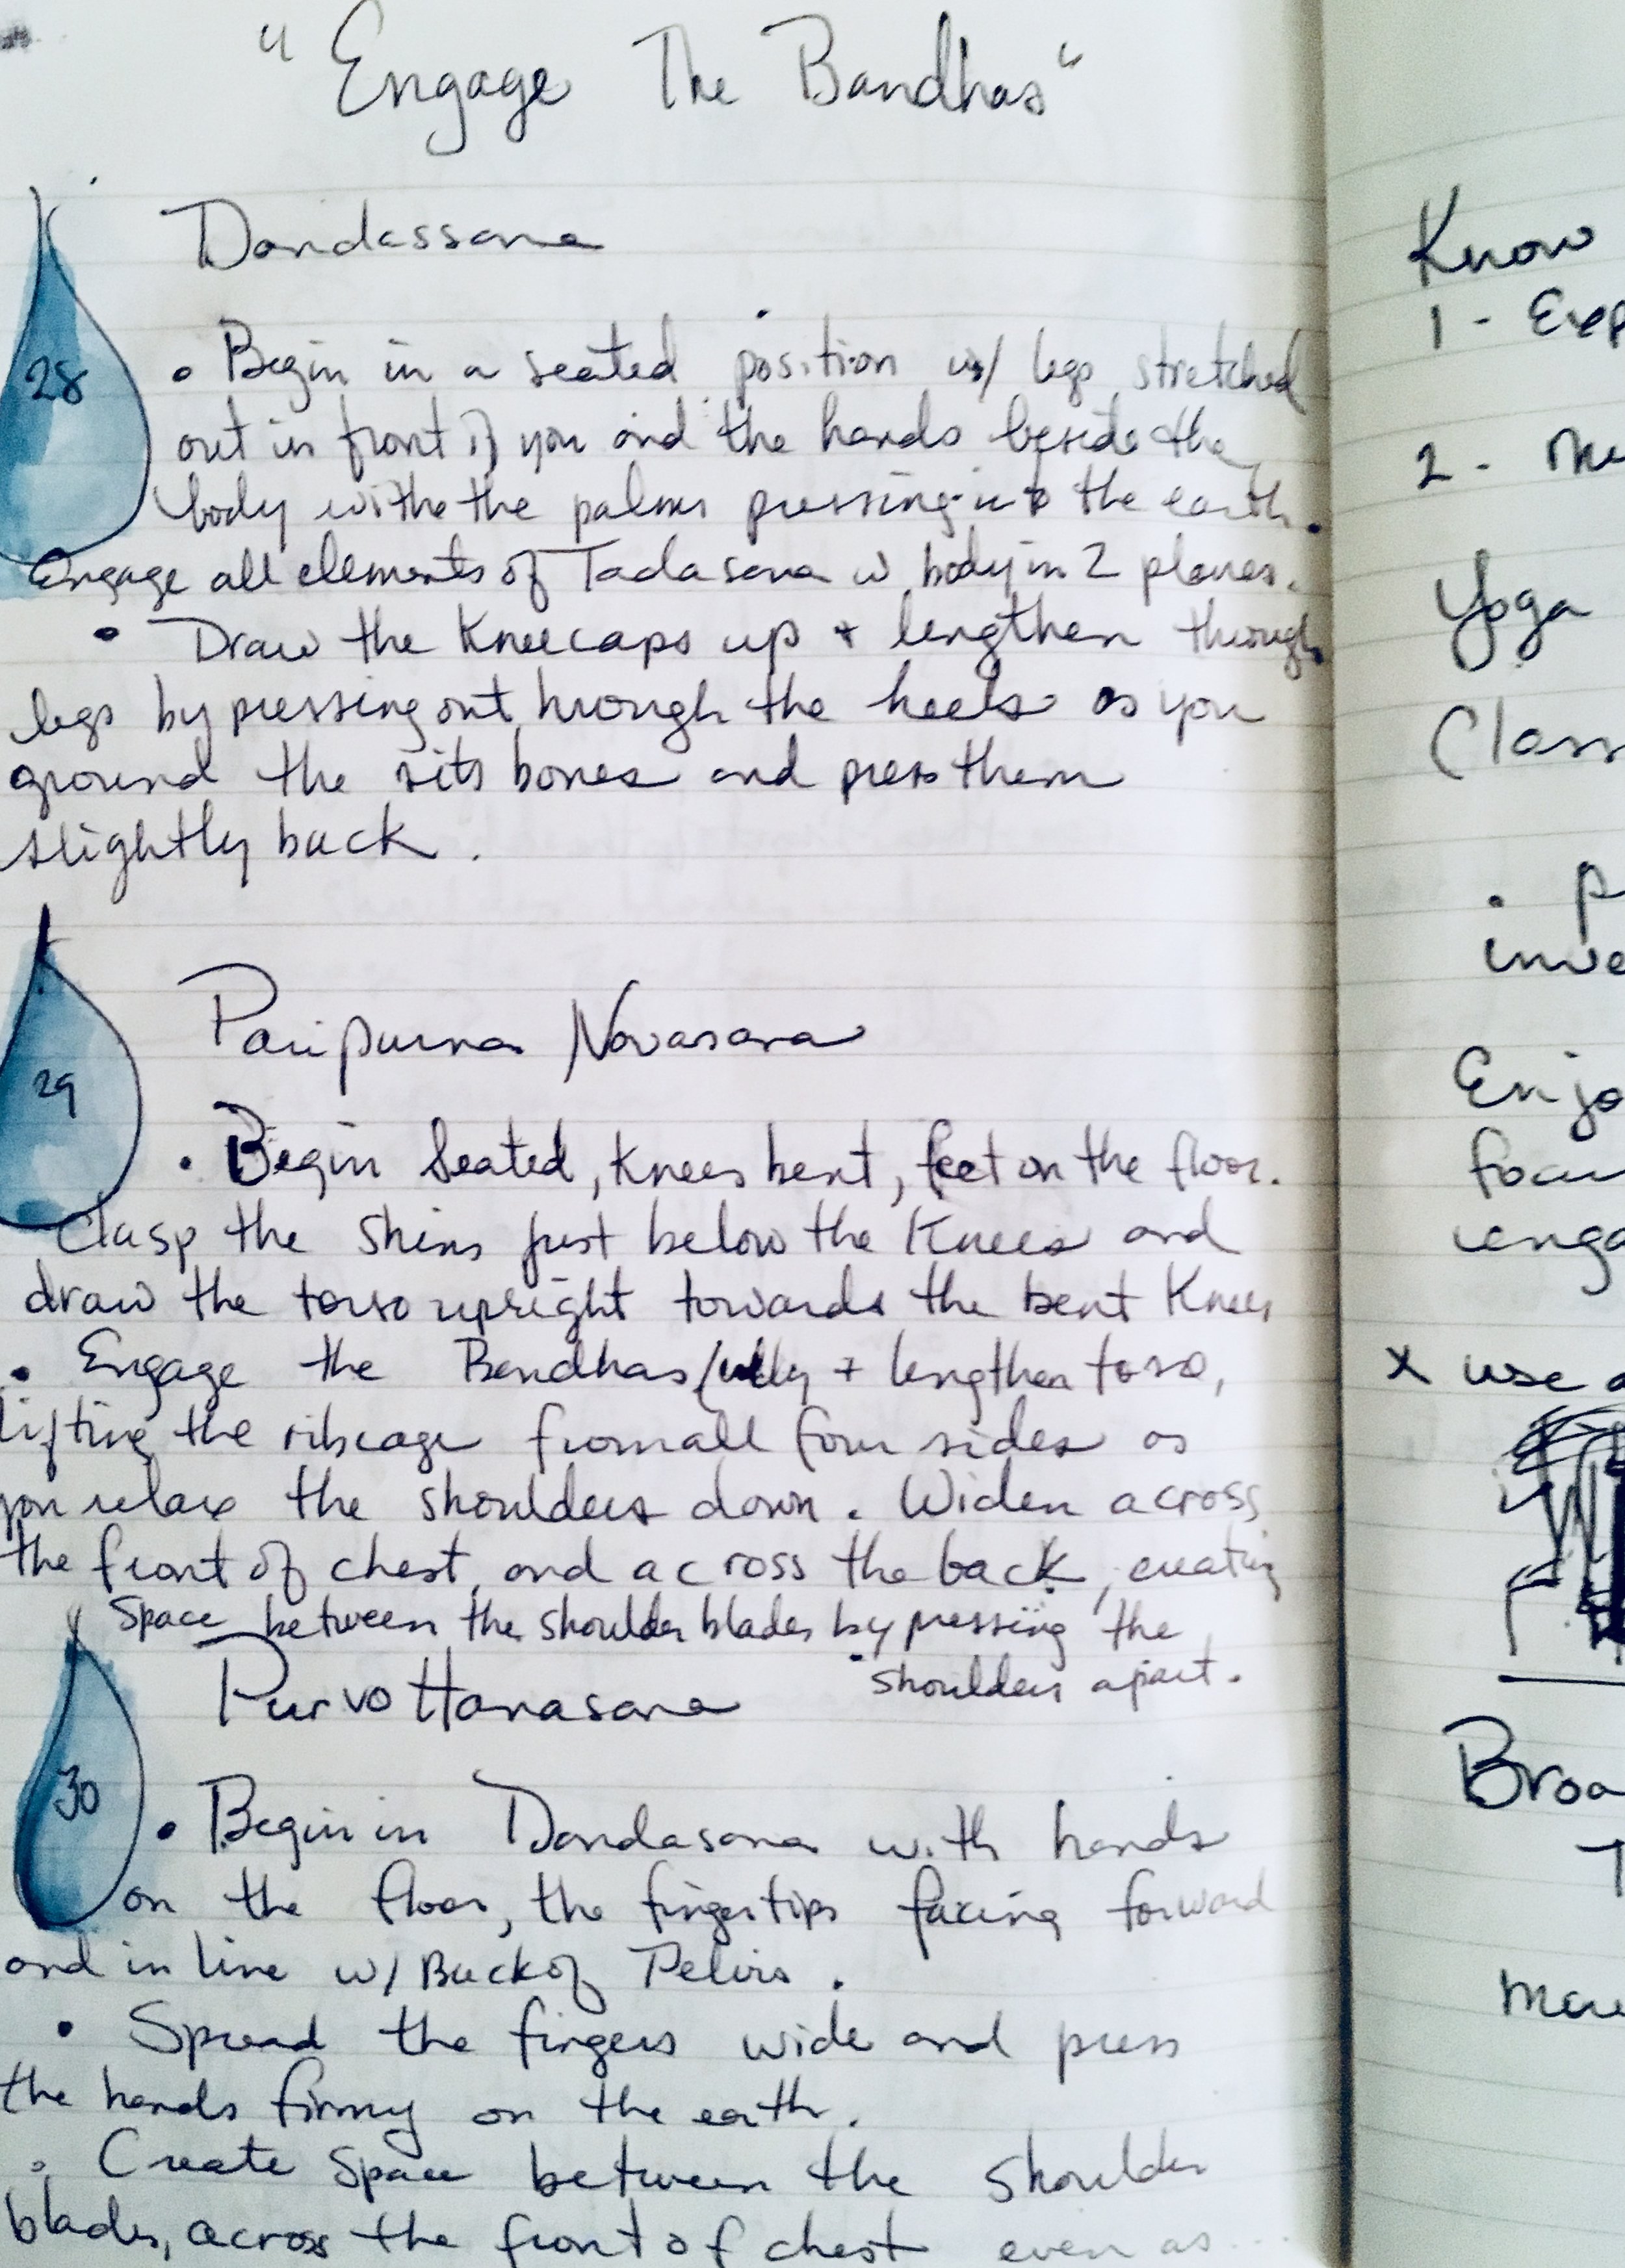 "Engage The Bandhas"
Dandassana
28
• Begin in a seated position w/ legs stretched
out in front of you and the hands beside the
body withe the palms pressing into the earth.
Engage all elements of Tadasana w body in 2 planes.
• Draw the Kneecaps up + lengthen through
legs by pressing out through the heels as you
ground the sits bones and press them
slightly back.
Paripurna Navasana
29
• Begin Seated, Knees bent, feet on the floor.
Clasp the Shins just below the Knees and
draw the torso upright towards the bent Knees
• Engage the Bandhas / + lengthen torso,
lifting the ribcage from all four sides as
you relax the shoulders down. Widen across
the front of chest, and across the back, creating
Space between the shoulder blades by pressing the
shoulders apart.
Purvottanasana
30
• Begin in Dandasana with hands
on the floor, the fingertips facing forward
and in line w/ Back of Pelvis.
• Spread the fingers wide and press
the hands firmy on the earth.
• Create Space between the Shoulder
blades, across the front of chest even as...
Know
1 - Exp
2 - 
Yoga
Class
• P
inve
Enjo
focu
enga
x use a
Broa
T